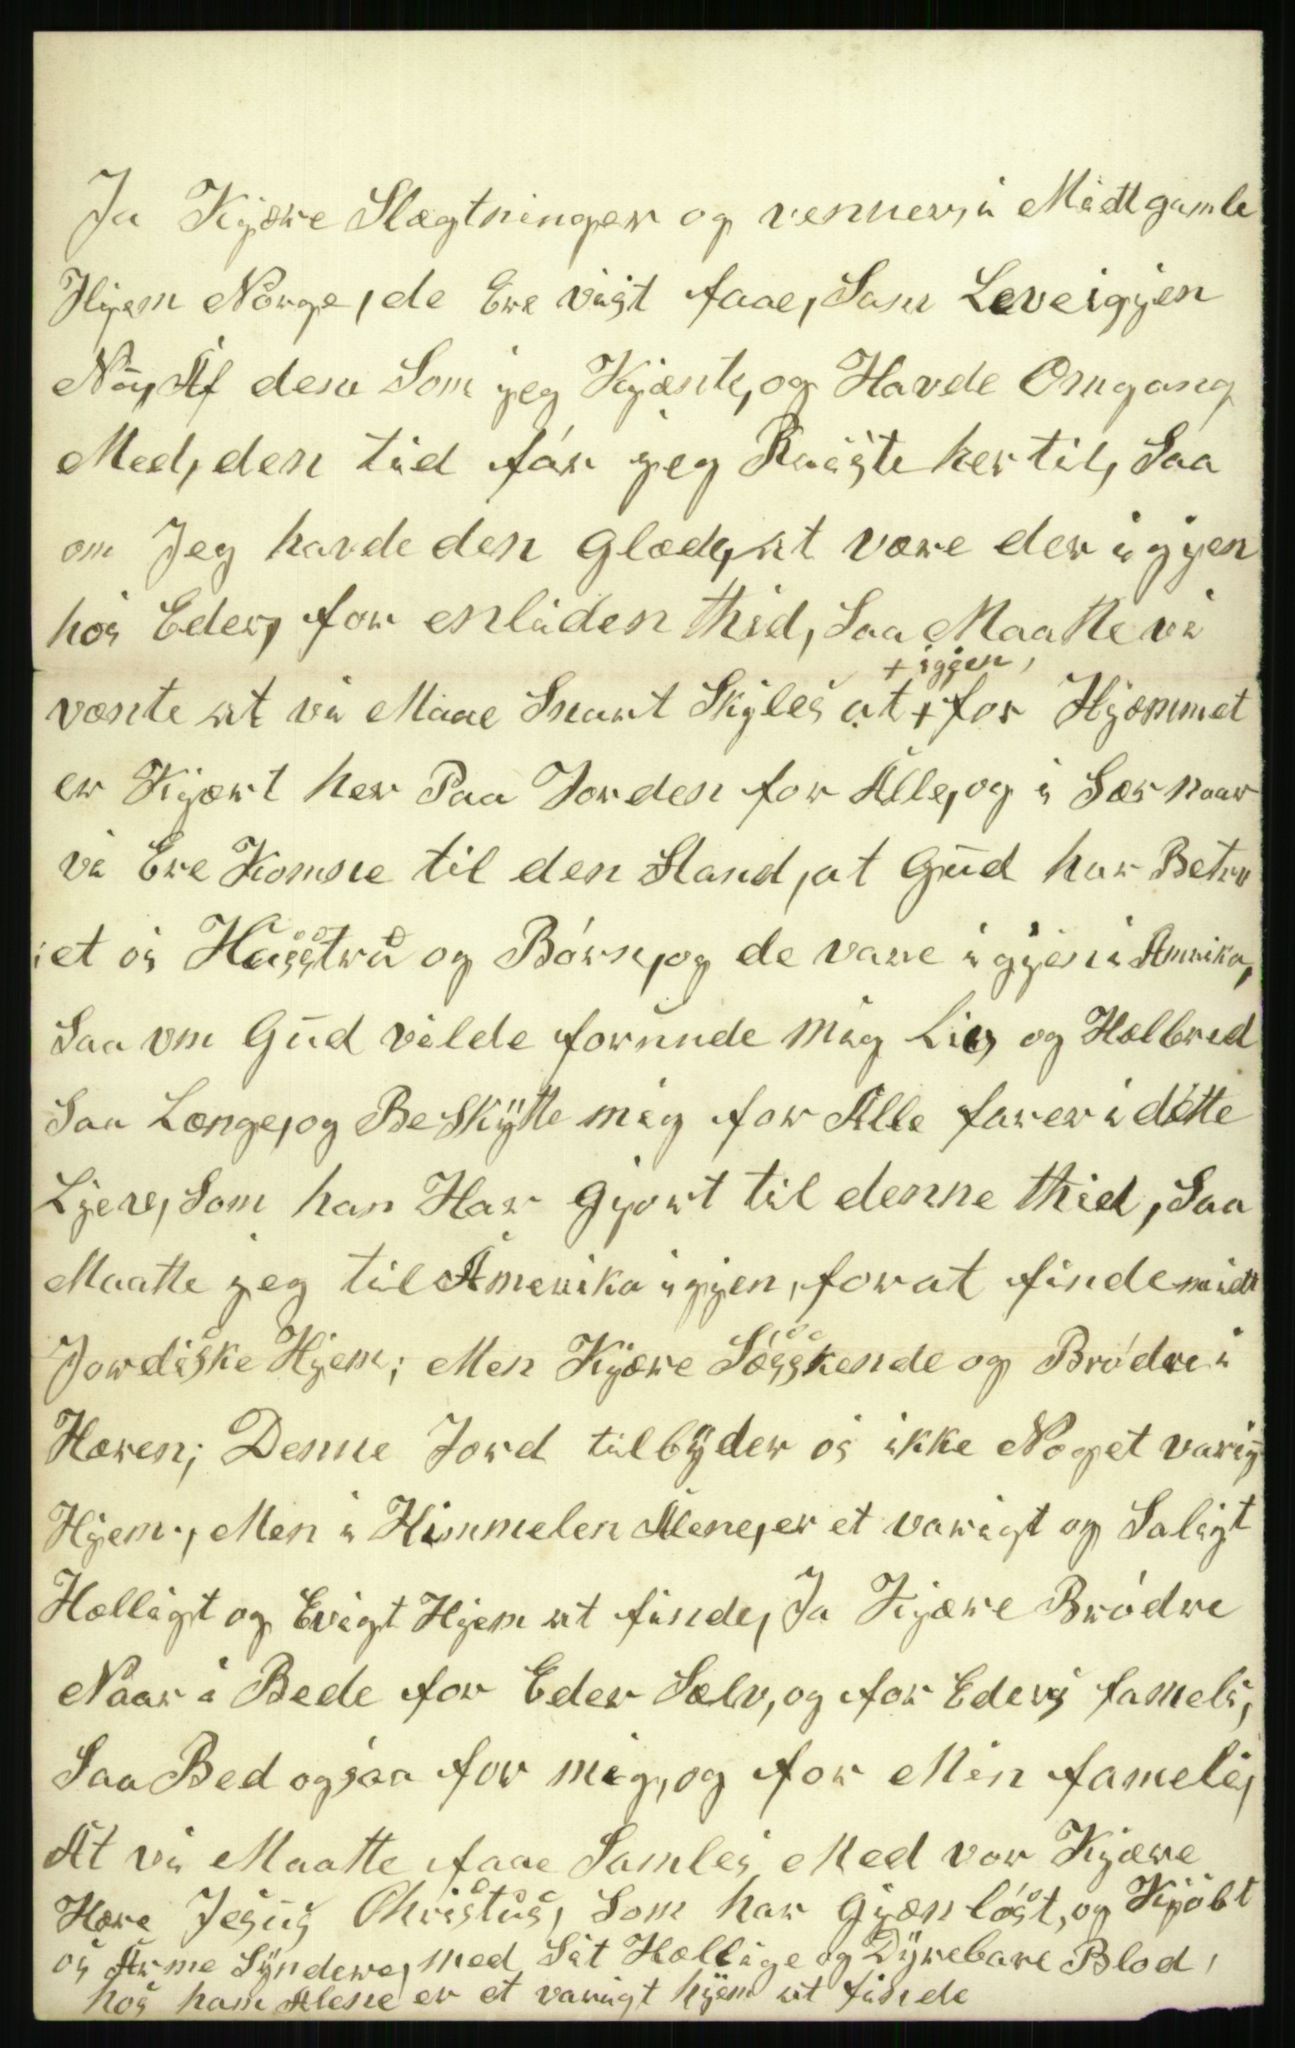 Ja Kjære Slægtninger og venner, i Midt gamle
Hjem Norge, de Ere vist faae, Som Leve igjen
Nu, Af dem Som jeg Kjænte, og Havde Omgang
Med, den tid før jeg Reiste her til, Saa
om Jeg havde den Glæde, at være der igjen
hos Eder, for enliden thid, Saa Maatte vi
+ igjen,
vænte at vi Maae Snart Skiles at + for Hjæmmet
er Kjært her Paa Jorden for Alle, og i Sær naar
vi Ere Komne til den Stand, at Gud har Betro
et os Husstru og Børn, og de vare igjen i Amrika,
Saa om Gud vilde forunde mig Liv og Helbred
Saa Længe, og Be Skytte mig for Alle farer i dette
Liere, Som han Har Gjort til denne thid, Saa
Maatte jeg til Amerika igjen, for at finde midt
Jordiske Hjem; Men Kjære Søsskende og Brødre i
Hæren; Denne Jord tilbyder os ikke Noget varig
Hjem., Men i Himmelen Alene, er et varigt og Saligt
Hælligt og Evigt Hjem at finde, Ja Kjære Brødre
Naar i Bede for Eder Sælv, og for Eders fameli,
Saa Bed ogsaa for mig, og for Min fameli,
At vi Maatte faae Samles Med vor Kjære
Hære Jesus Christus, Som har Gjænløst, og Kjøbt
os Arme Syndere, med Sit Hællige og Dyrebare Blod,
hos ham Alene er et varigt hjem at finde